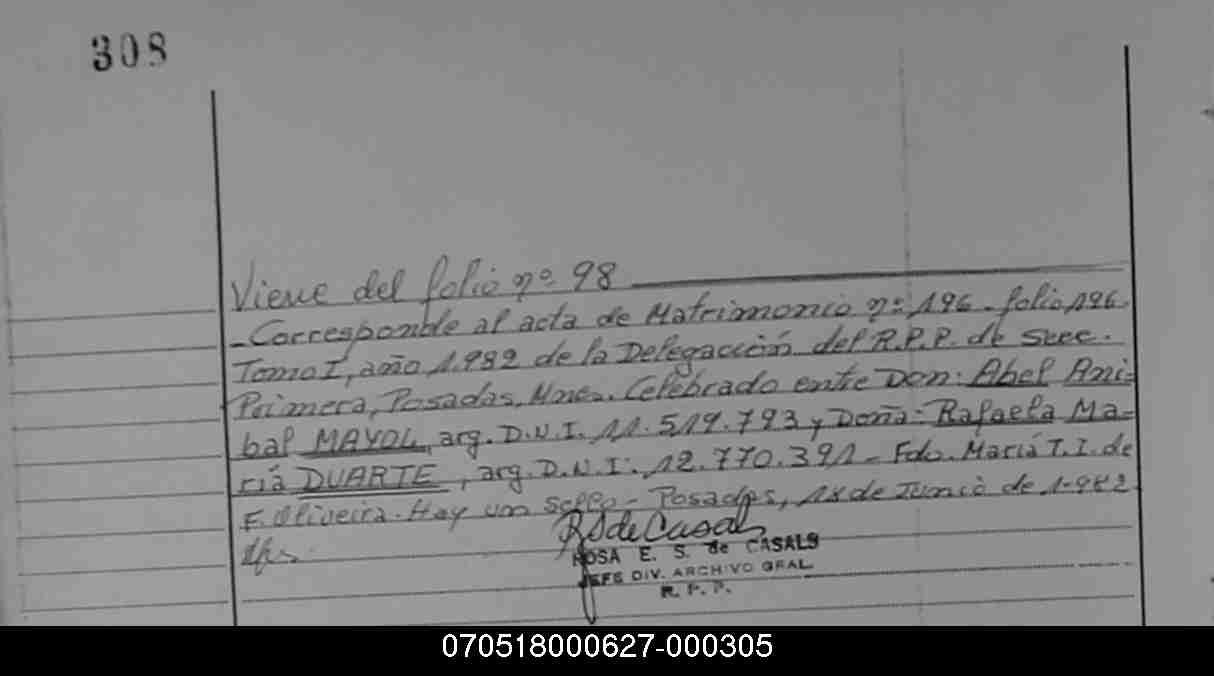 308
Viene del folio nº 98
- Corresponde al acta de Matrimonio nº 196 - folio 196.
Tomo I, año 1.982 de la Delegación del R.P.P. de Secc.
Primera, Posadas, Mnes. Celebrado entre Don: Abel Ani=
bal MAYOL, arg. D.N.I. 11.519.793 y Doña: Rafaela Ma=
ría DUARTE, arg. D.N.I. 12.770.391 - Fdo. María T. I. de
F. Oliveira. Hay un sello - Posadas, 18 de Junio de 1.982
RSdeCasals
ROSA E. S. de CASALS
JEFE DIV. ARCHIVO GRAL.
R. P. P.
070518000627-000305